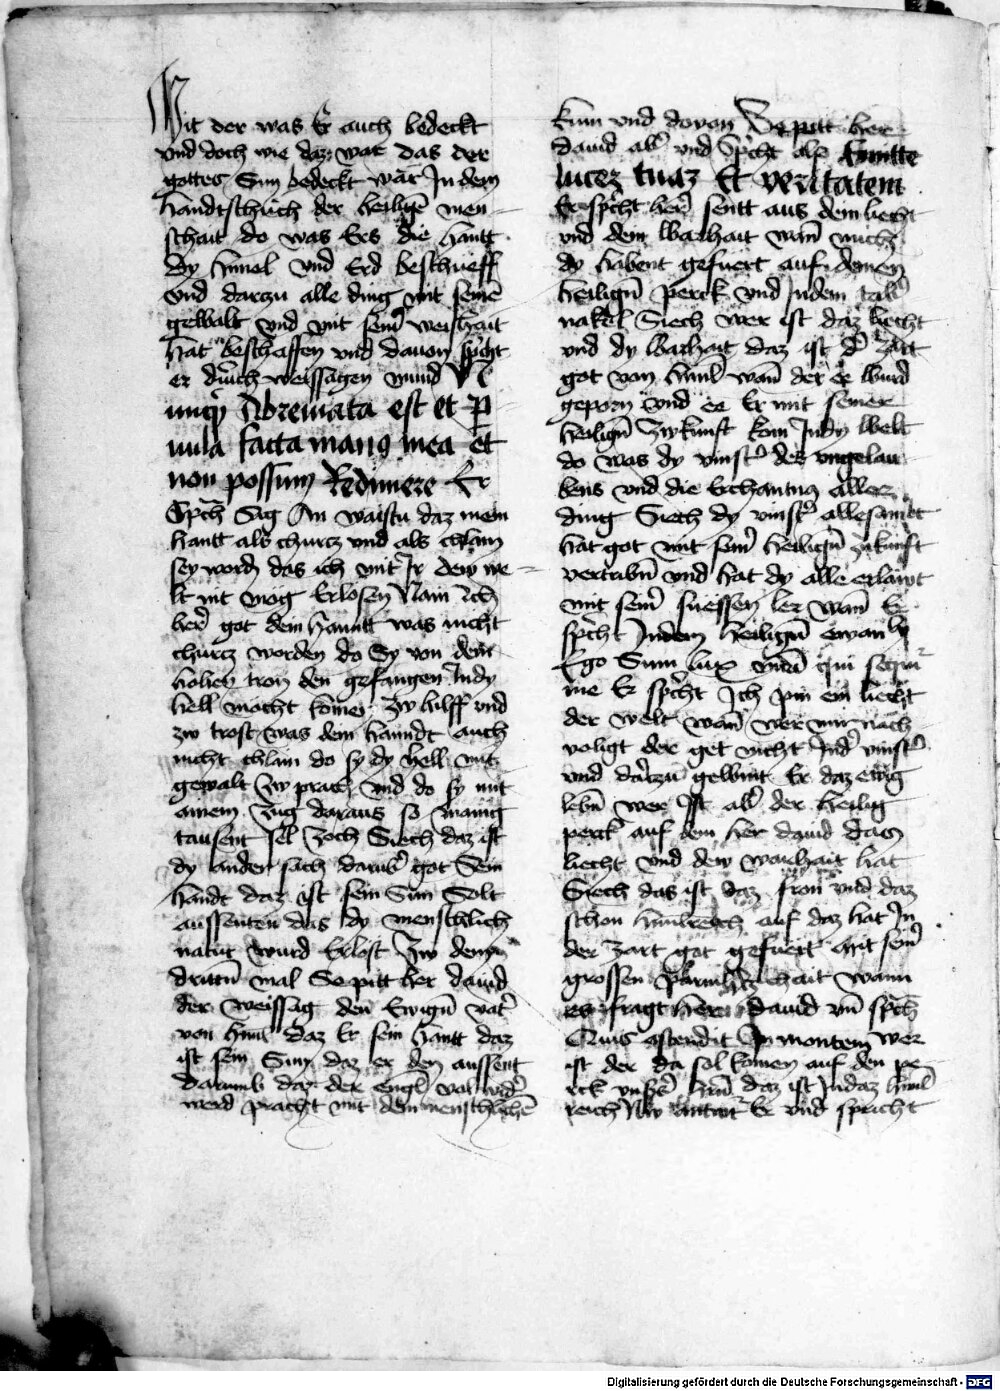 Mit der was Er auch bedeckt
vnd doch wie daz war das der
gottes Sun bedeckt wár In dem
handtschuch der heiligē men
schait do was Ers die hantt
dy himel vnd Erd beschueff
vnd darczu alle ding mit seinē
gewalt vnd mit seinr weishait
hat beschaffen vnd dauon spricht
er durch weissagen mund N
umqz Abreviata est et p
uula facta manus mea et
non possum Redimere Er
Sprch Sag An waistu daz mein
hantt als churcz vnd als chlain
sey word das ich mit Ir dew we
lt nit mog Erlosen Nain Ich
her got dem hanntt was nicht
churcz worden do Sy von dem
hohen tron den gefangen Indy
hell mocht komen zw hilff vnd
zw trost was dem hanndt auch
nicht chlain do sy dy hell mit
gewalt zw prach vnd do sy mit
ainem zug daraus so manig
tausent sel zoch Siech daz ist
dy ander sach darub got Sein
handt daz ist sein Sun Solt
aussenten das dy menschlich
natur wurd Erlost Zw dem
drittn mal So pitt her dauid
der weissag den Ewign vatr
von himl daz Er sein hantt daz
ist sein Sun daz er den aussent
darumb daz der engl val widr
werd pracht mit dem menschlichē
kum vnd dovon So pitt her
dauid abr vnd spricht also Emitte
lucez tuaz Et veritatem
Er spricht herr sentt aus dem liecht
vnd dem Warhait wann mich
dy habent gefuert auf deinen
heilign perck vnd Indem tabr
nakel Siech wer ist daz liecht
vnd dy Warhait daz ist dr zart
got von himl wann der er wurd
geporn vnd ee Er mit seiner
heilign Zwkunft kom Indy Welt
do was dy vinstr des vngelau
bens vnd die Erchantnus aller
ding Siech dy vinstr allesamt
hat got mit seinr heilign zukunft
vertribn vnd hat dy alle erlawt
mit seinr suessen ler wann Er
spricht Indem heilign ewanly
Ego Sum lux mūd qui sequir
me Er spricht Ich pin ein liecht
der welt wann wer mir nach
voligt der get nicht Indr vinstr
vnd darzu gewint Er daz ewig
lebn wer Ist abr der heilig
perck auf dem her dauid das
liecht vnd dew warhait hat
Siech das ist daz fron vnd daz
schon himlreich auf daz hat In
der zart got gefuert mit seinr
grossen parmhrzichait wann
es fragt her dauid vnd sprch
Quis ascendit In montem wer
ist der da sol komen auf den pe
rck vnsrs hrn daz ist Indaz himl
reich Nw antwrt Er vnd spricht
Digitalisierung gefördert durch die Deutsche Forschungsgemeinschaft - DFG